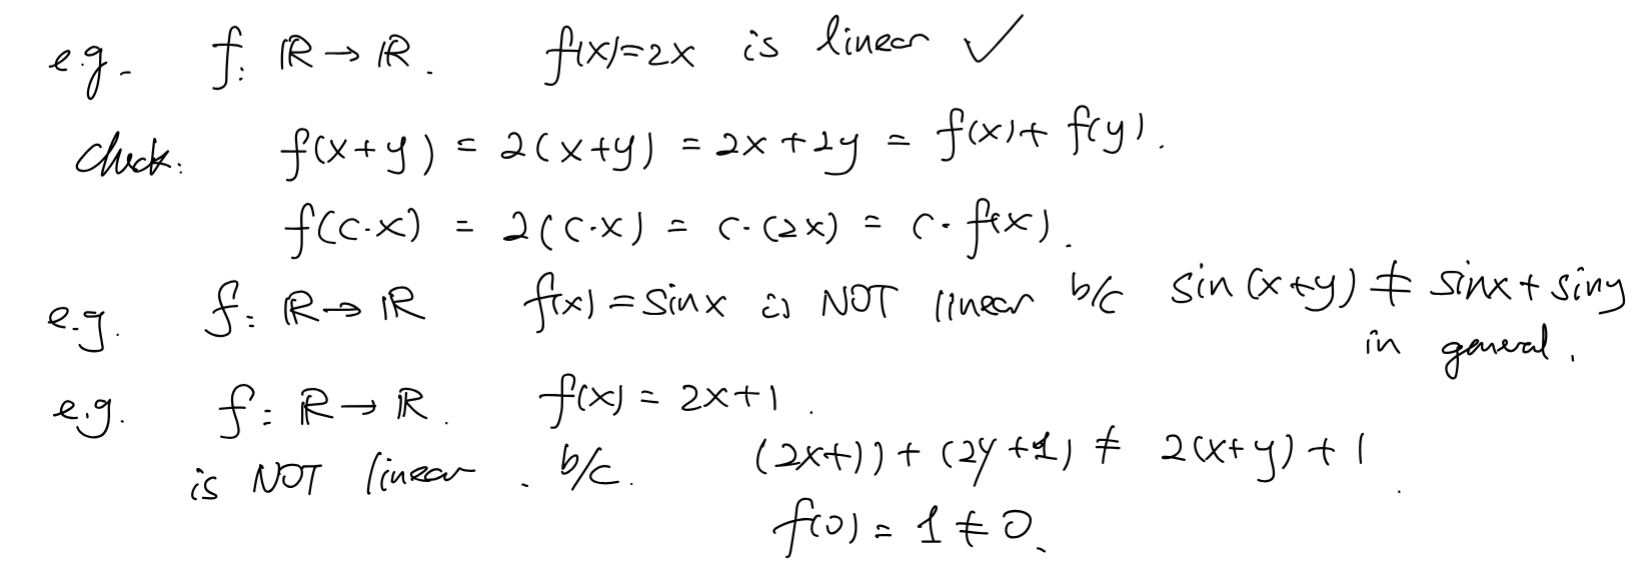 e.g. f: ℝ→ℝ. f(x)=2x is linear ✓
check: f(x+y) = 2(x+y) = 2x+2y = f(x)+f(y).
f(c·x) = 2(c·x) = c·(2x) = c·f(x).
e.g. f: ℝ→ℝ f(x)=sinx is NOT linear b/c sin(x+y) ≠ sinx+siny
in general.
e.g. f: ℝ→ℝ. f(x) = 2x+1.
is NOT linear. b/c. (2x+1)+(2y+1) ≠ 2(x+y)+1.
f(0) = 1 ≠ 0.